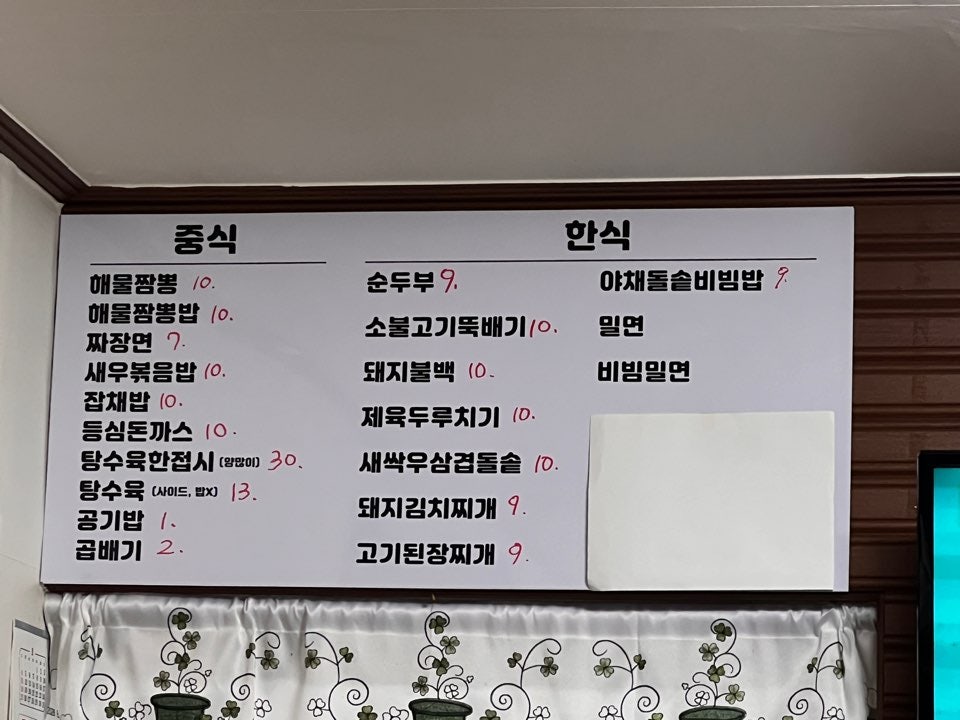 중식
해물짬뽕 10.
해물짬뽕밥 10.
짜장면 7.
새우볶음밥 10.
잡채밥 10.
등심돈까스 10.
탕수육한접시 (양많이) 30.
탕수육 (사이드, 밥X) 13.
공기밥 1.
곱배기 2.
한식
순두부 9.
소불고기뚝배기 10.
돼지불백 10.
제육두루치기 10.
새싹우삼겹돌솥 10.
돼지김치찌개 9.
고기된장찌개 9.
야채돌솥비빔밥 9.
밀면
비빔밀면